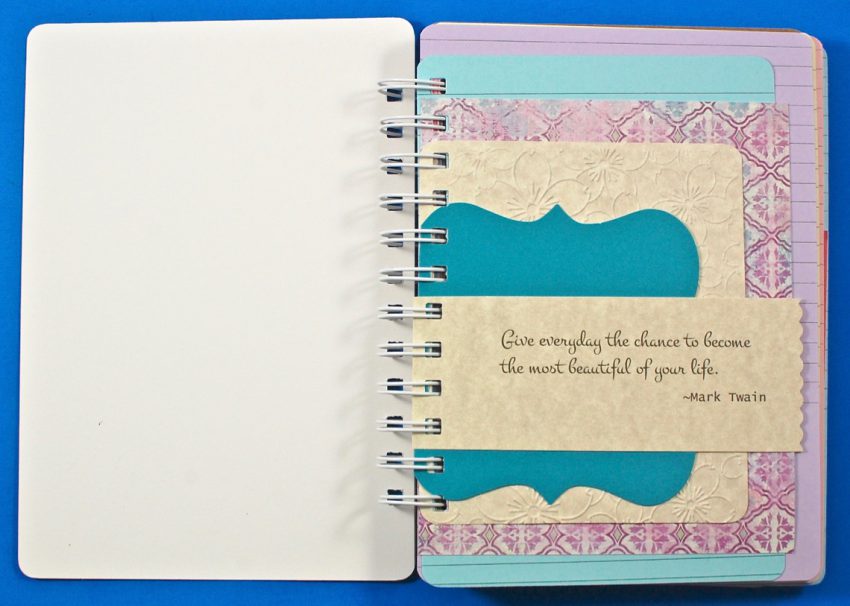 Give everyday the chance to become
the most beautiful of your life.
~Mark Twain